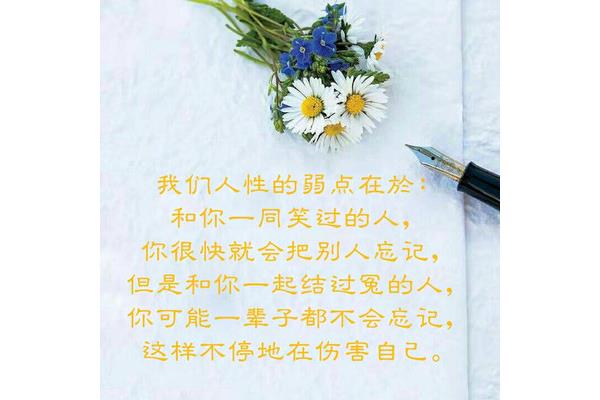 我们人性的弱点在於：
和你一同笑过的人，
你很快就会把别人忘记，
但是和你一起结过冤的人，
你可能一辈子都不会忘记，
这样不停地在伤害自己。